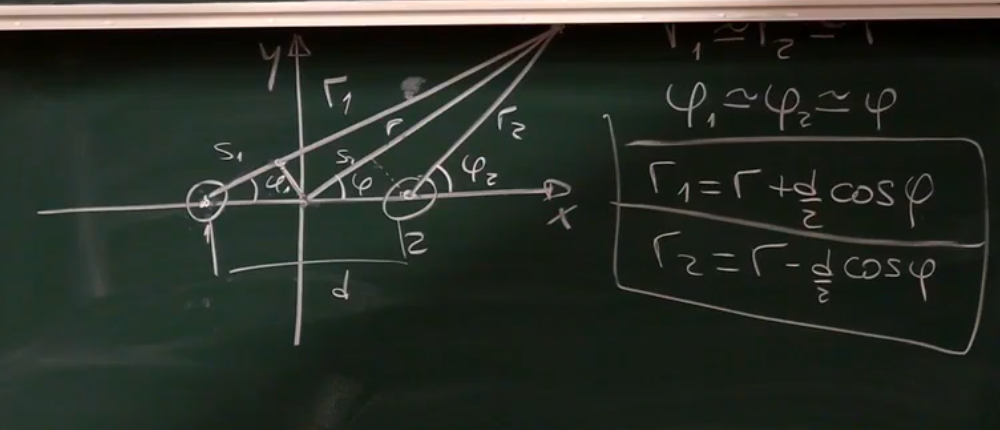 y
r₁
r
r₂
S₁
S₂
φ₁
φ
φ₂
x
1
2
d
r₁ ≃ r₂ ≃ r
φ₁ ≃ φ₂ ≃ φ
r₁ = r + d/2 cosφ
r₂ = r - d/2 cosφ